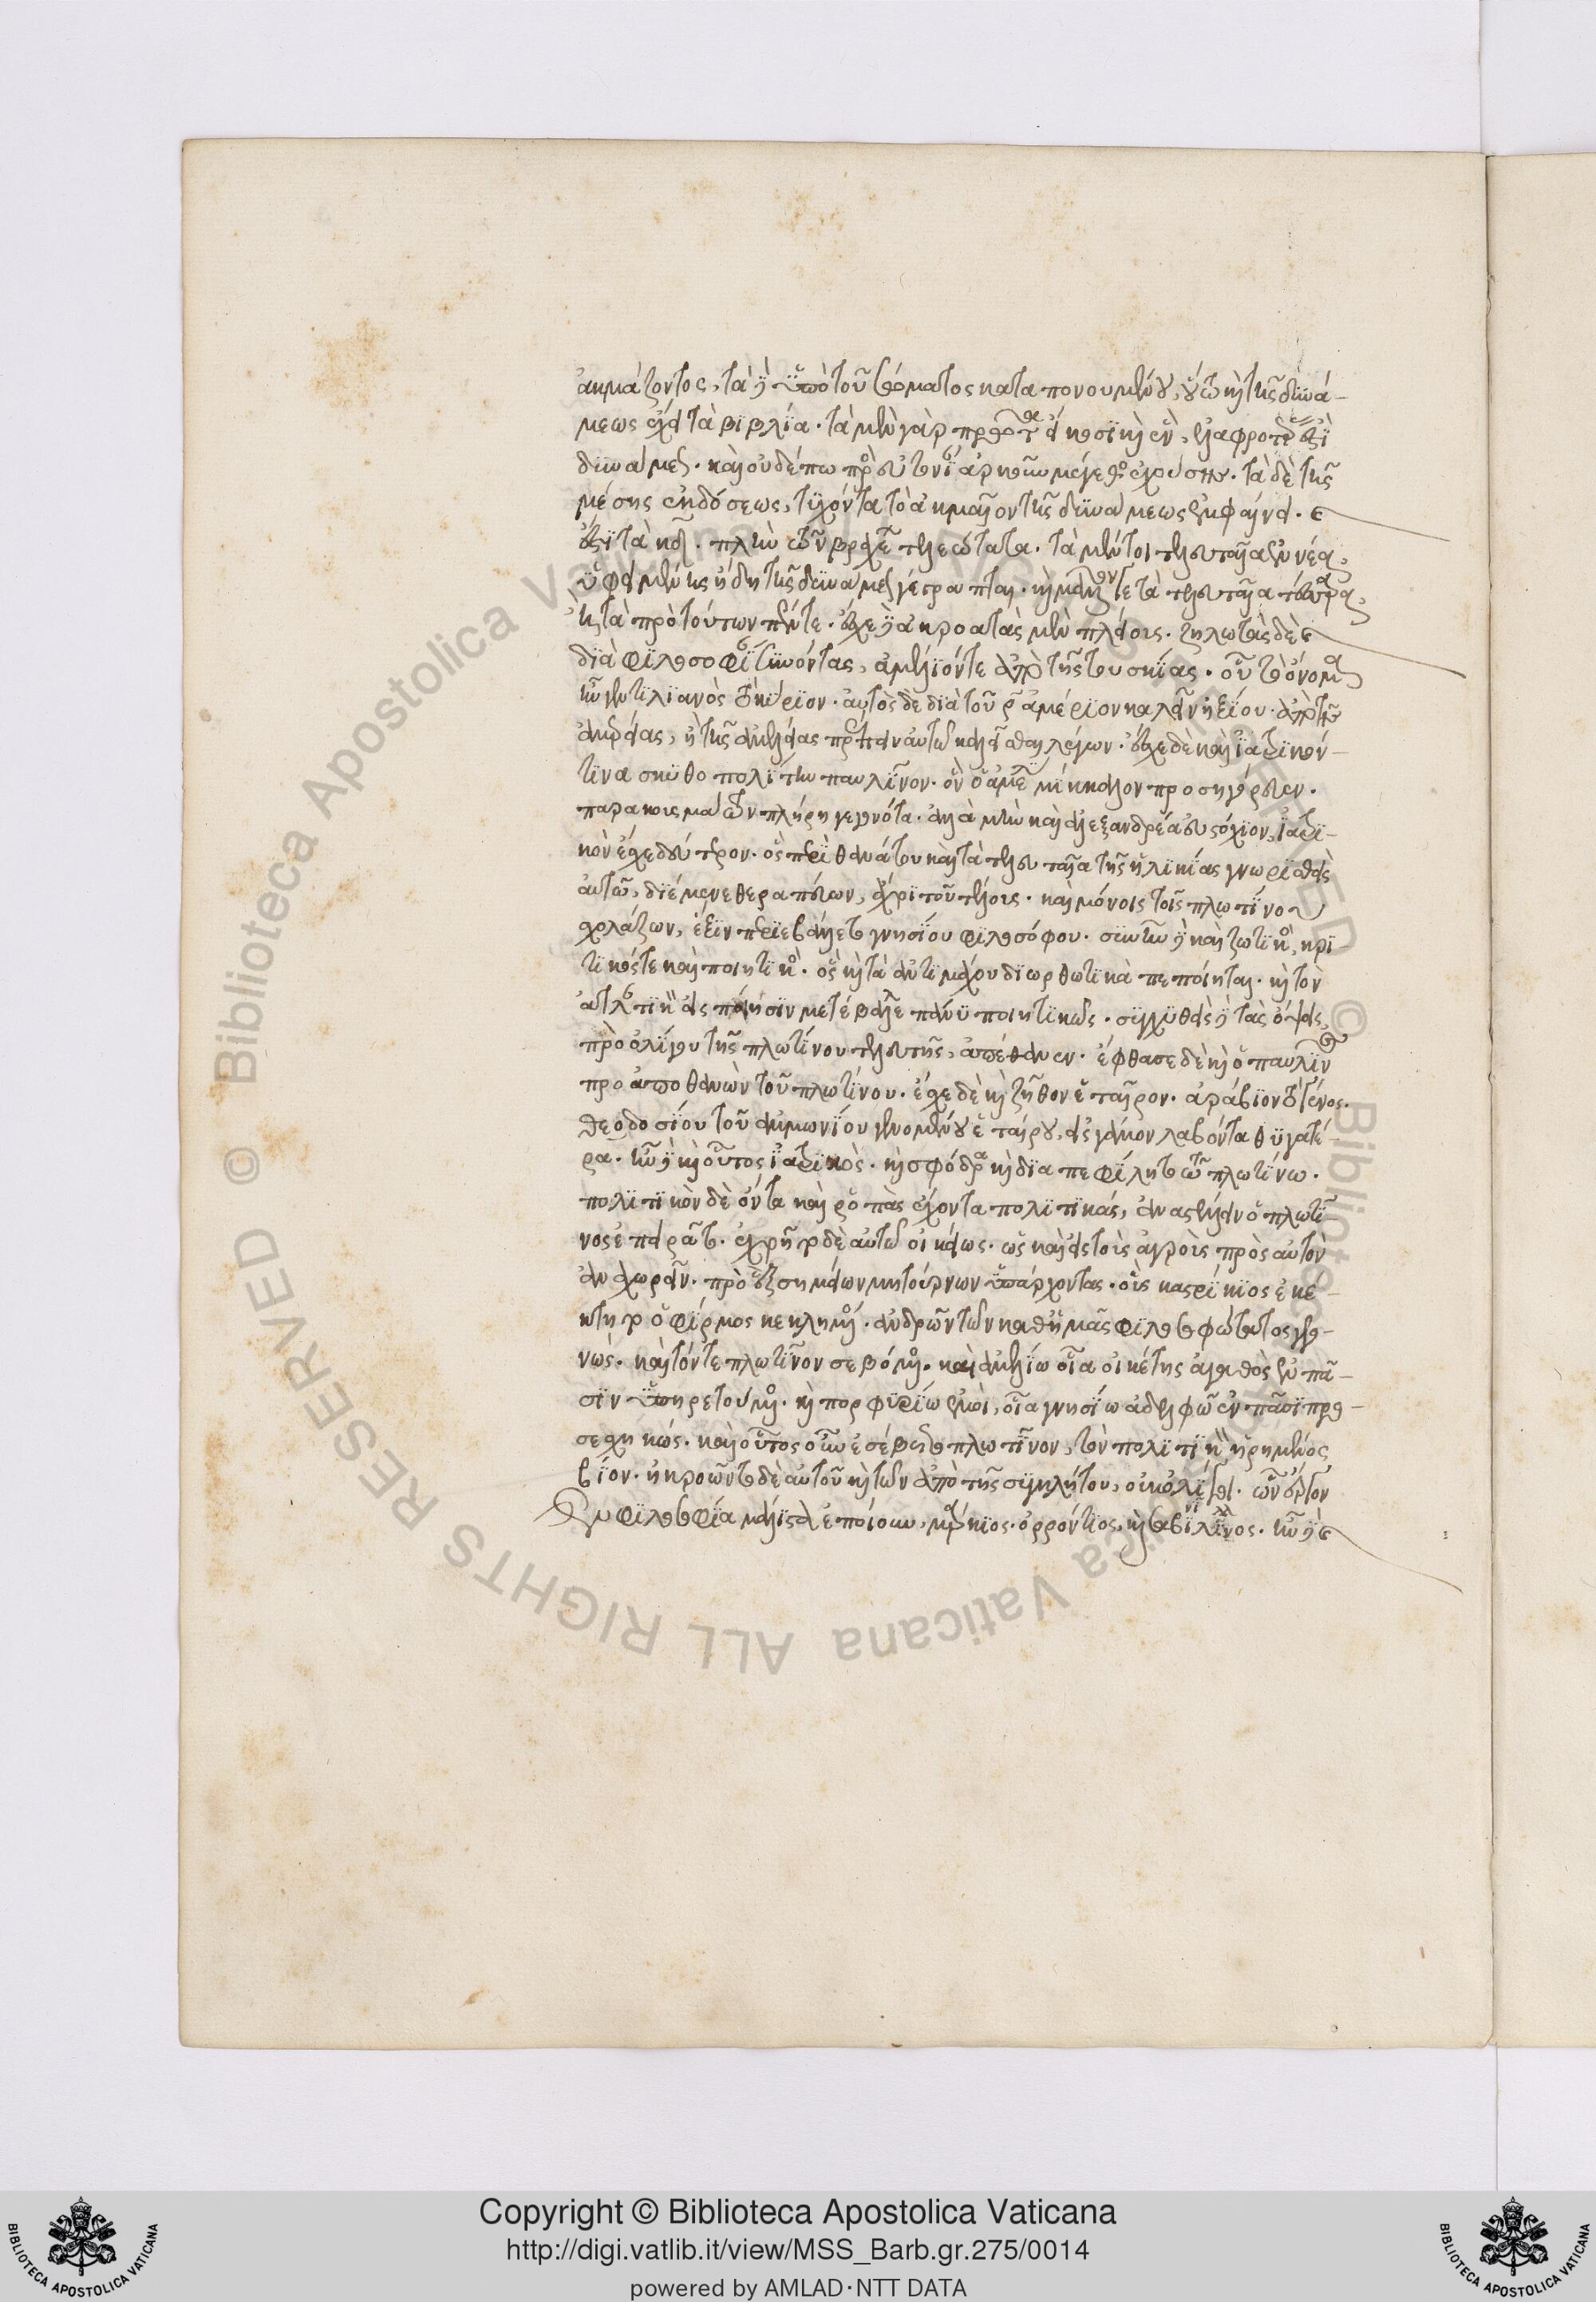 ἀκμάζοντος, τὰ δὲ ὑπὸ τοῦ σώματος καταπονουμένου, οὕτω καὶ τῆς δυνά-
μεως ἔχει τὰ βιβλία. τὰ μὲν γὰρ πρῶτα εἴκοσι καὶ ἓν, ἐλαφροτέρας ἐστὶ
δυνάμεως. καὶ οὐδέπω πρὸς εὐτονίαν ἀρκοῦν μέγεθος ἐχούσης. τὰ δὲ τῆς
μέσης ἐκδόσεως, τυχόντα τὸ ἀκμαῖον τῆς δυνάμεως ἐμφαίνει.
ἐστὶ τὰ κδ. πλὴν τῶν βραχέων τελεώτατα. τὰ μέντοι τελευταῖα ἐννέα,
ὑφειμένης ἤδη τῆς δυνάμεως γέγραπται. καὶ μᾶλλόν γε τὰ τελευταῖα τέσσαρα,
ἢ τὰ πρὸ τούτων πέντε. ἔσχε δὲ ἀκροατὰς μὲν πλείους. ζηλωτὰς δὲ
διὰ φιλοσοφίαν συνόντας, ἀμέλιόν τε ἀπὸ τῆς τουσκίας. οὗ τὸ ὄνομα
ἦν γεντιλιανὸς τὸ κύριον. αὐτὸς δὲ διὰ τοῦ ρ ἀμέριον καλεῖν ἠξίου. ἀπὸ τῆς
ἀμερείας, ἢ τῆς ἀμελείας πρέπειν αὐτῷ καλεῖσθαι λέγων. ἔσχε δὲ καὶ ἰατρικόν
τινα σκυθοπολίτην παυλῖνον. ὃν ὁ ἀμέλιος μίκκαλον προσηγόρευεν.
παρακουσμάτων πλήρη γεγονότα. ἀλλὰ μὴν καὶ ἀλεξανδρέα εὐστόχιον, ἰατρι-
κὸν ἔσχε δεύτερον. ὃς περὶ θανάτου καὶ τὰ τελευταῖα τῆς ἡλικίας γνωρισθεὶς
αὐτῷ, διέμενε θεραπεύων, ἄχρι τοῦ τέλους. καὶ μόνοις τοῖς πλωτίνου
σχολάζων, ἕξιν περιεβάλλετο γνησίου φιλοσόφου. συνῆν δὲ καὶ ζωτικὸς, κρι-
τικός τε καὶ ποιητικὸς. ὃς καὶ τὰ ἀντιμάχου διορθωτικὰ πεποίηται. καὶ τὸν
ἀτλαντικὸν εἰς ποίησιν μετέβαλλε πάνυ ποιητικῶς. συγχυθεὶς δὲ τὰς ὄψεις,
πρὸ ὀλίγου τῆς πλωτίνου τελευτῆς, ἀπέθανεν. ἔφθασε δὲ καὶ ὁ παυλῖνος
προαποθανὼν τοῦ πλωτίνου. ἔσχε δὲ καὶ ζῆθον ἑταῖρον. ἀράβιον τὸ γένος.
θεοδοσίου τοῦ ἀμμωνίου γενομένου ἑταίρου, εἰς γάμον λαβόντα θυγατέ-
ρα. ἦν δὲ καὶ οὗτος ἰατρικὸς. καὶ σφόδρα καὶ δια πεφίλητο τῷ πλωτίνῳ.
πολιτικὸν δὲ ὄντα καὶ ῥοπὰς ἔχοντα πολιτικάς, ἀναστέλλειν ὁ πλωτῖ
νος ἐπειρᾶτο. ἐχρῆτο δὲ αὐτῷ οἰκείως. ὡς καὶ εἰς τοὺς ἀγροὺς πρὸς αὐτὸν
ἀναχωρεῖν. πρὸ ἓξ σημείων μητούρνων ὑπάρχοντας. οὓς καστρίκιος ἐκέ-
κτητο ὁ φίρμος κεκλημένος. ἀνδρῶν τῶν καθ' ἡμᾶς φιλοσοφώτατος γεγο-
νὼς. καὶ τόν τε πλωτῖνον σεβόμενος. καὶ ἀμελίῳ οἷα οἰκέτης ἀγαθὸς ἐν πᾶ-
σιν ὑπηρετούμενος. καὶ πορφυρίῳ ἐμοὶ, οἷα γνησίῳ ἀδελφῷ ἐν πᾶσι προ-
σεσχηκώς. καὶ οὗτος οὖν ἐσέβετο πλωτῖνον, τὸν πολιτικὸν ᾑρημένος
βίον. ἠκροῶντο δὲ αὐτοῦ καὶ τῶν ἀπὸ τῆς συγκλήτου, οὐκ ὀλίγοι. ὧν ἔργον
ἐν φιλοσοφία μάλιστα ἐποίουν, μάρκελλος. ὀρρόντιος, καὶ σαβινίλλος. ἦν δὲ